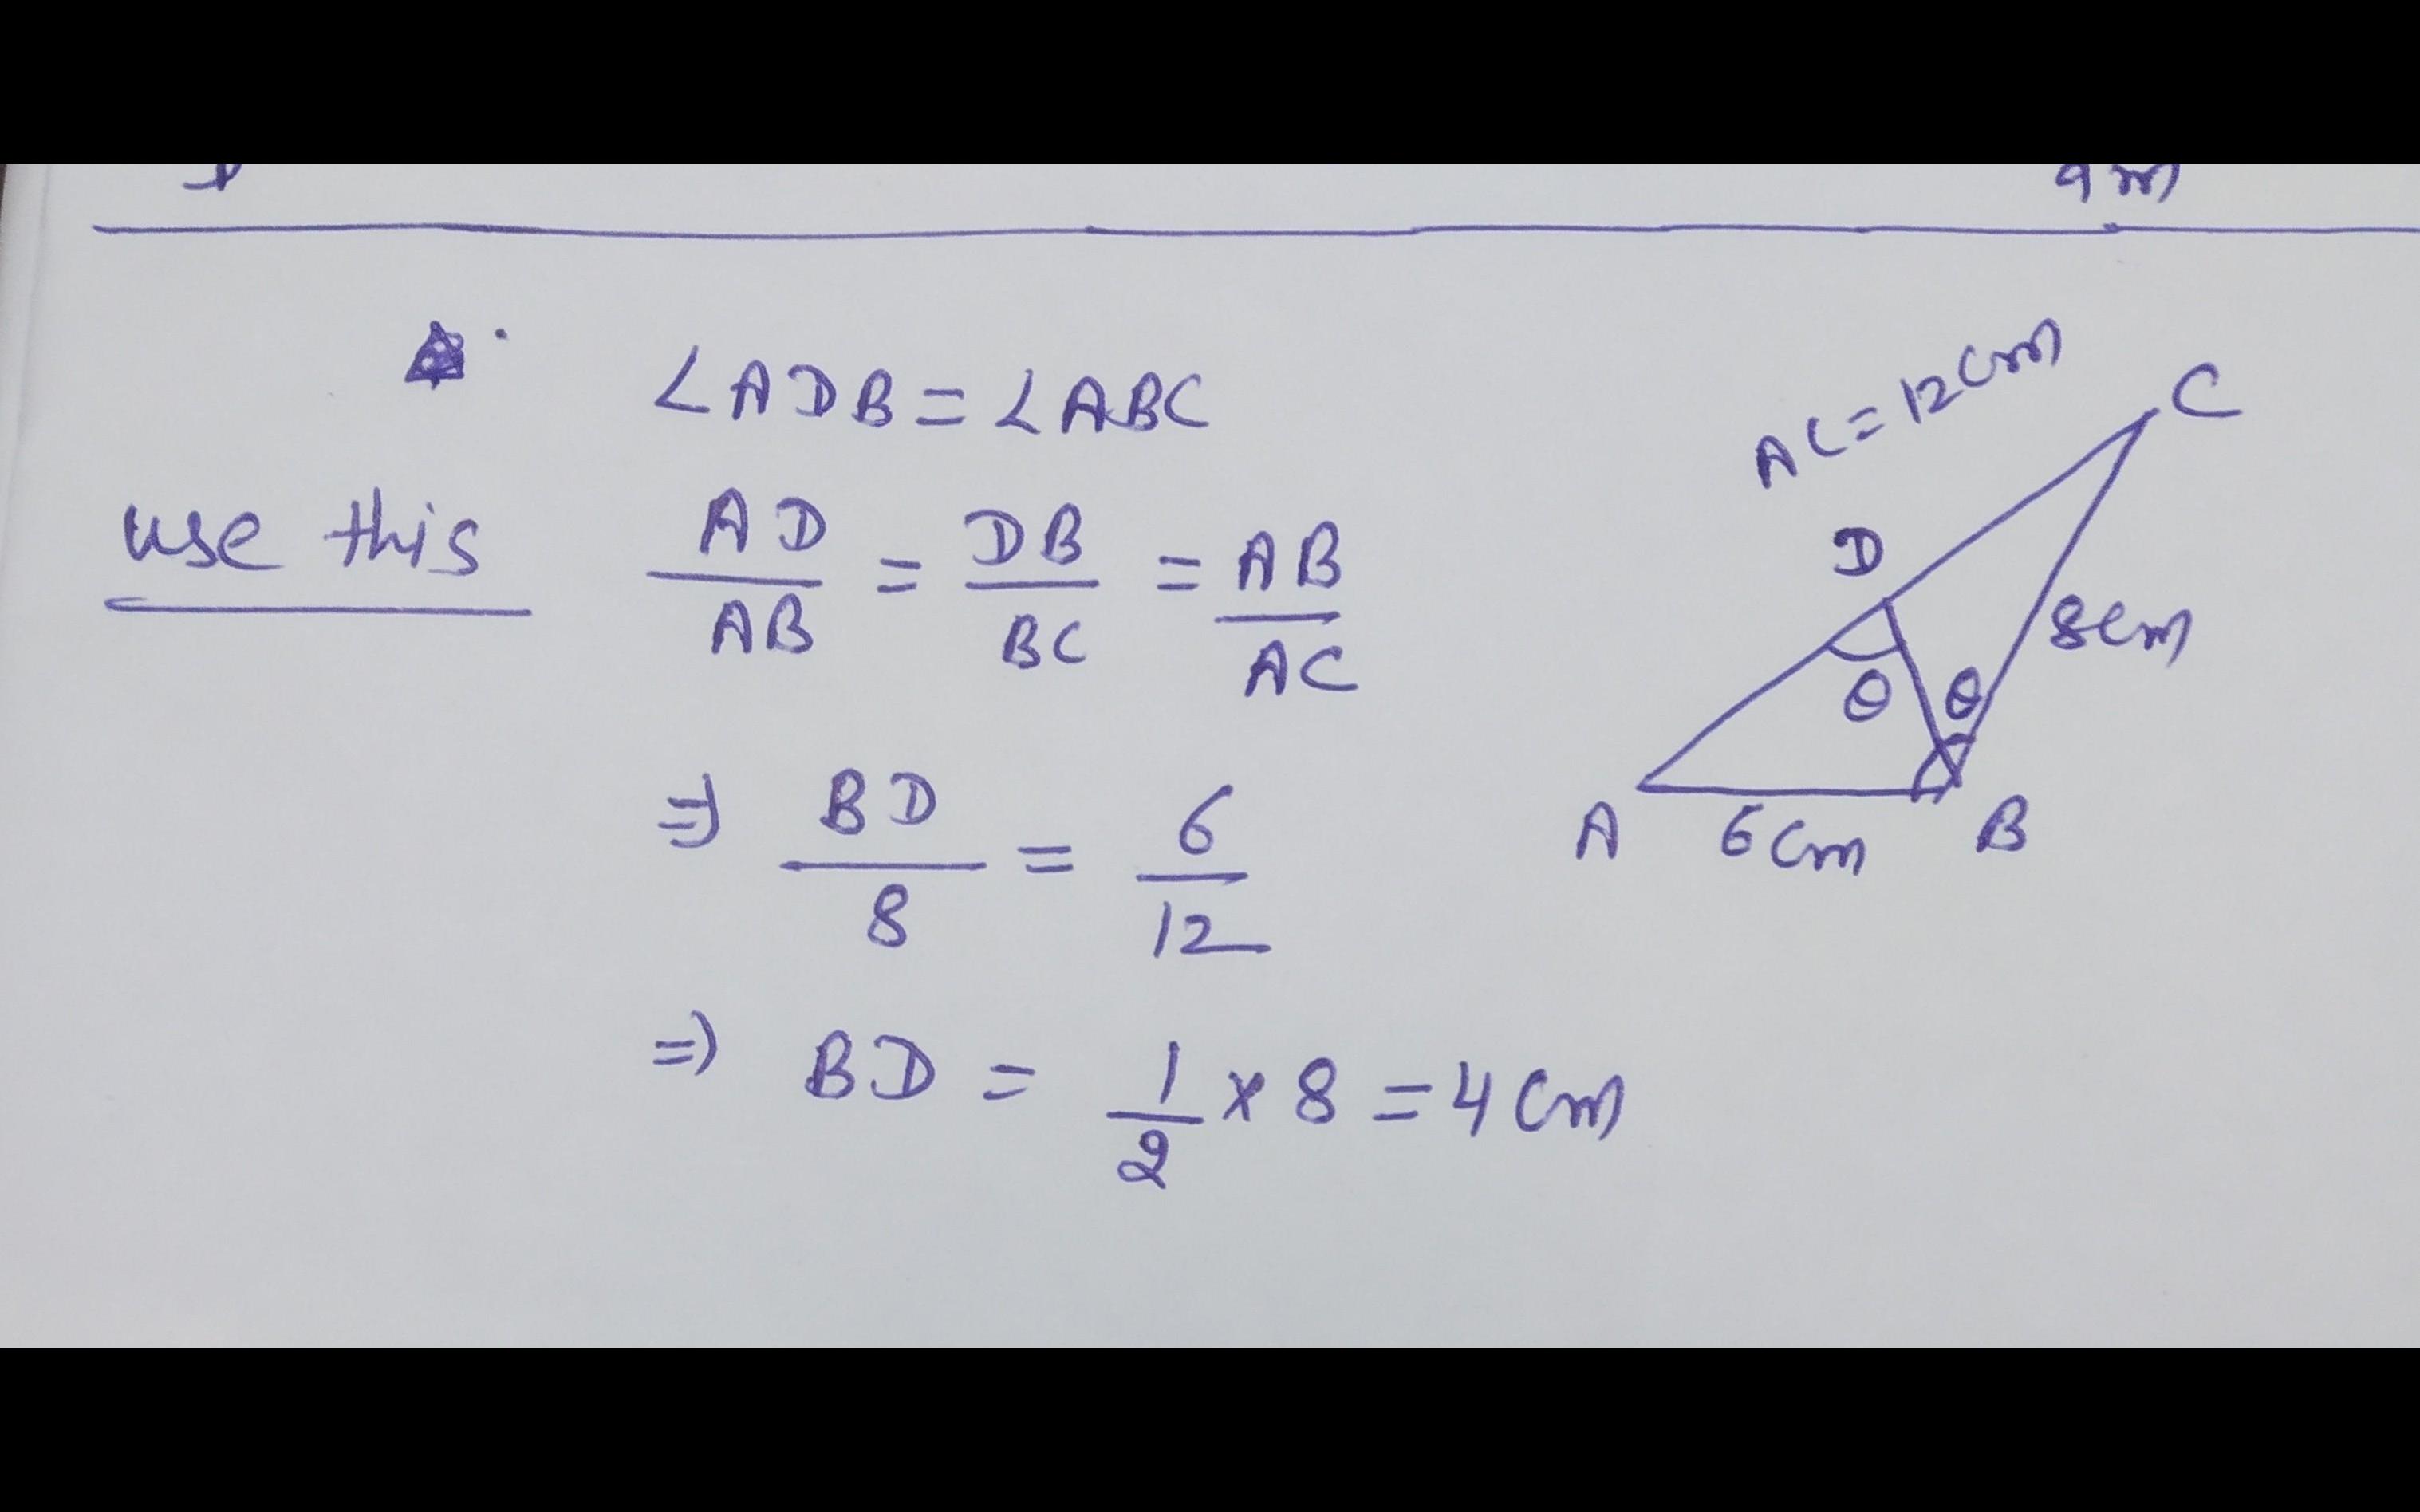 9 m
∠ADB = ∠ABC
use this AD/AB = DB/BC = AB/AC
⇒ BD/8 = 6/12
⇒ BD = 1/2 × 8 = 4 cm
AC = 12 cm
C
D
8 cm
θ θ
A 6 cm B